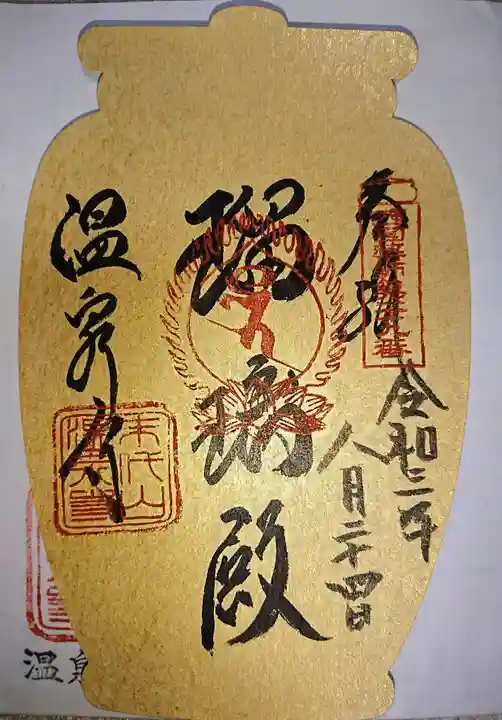 奉拝
令和三年
八月二十四日
瑠璃殿
温泉寺
温泉